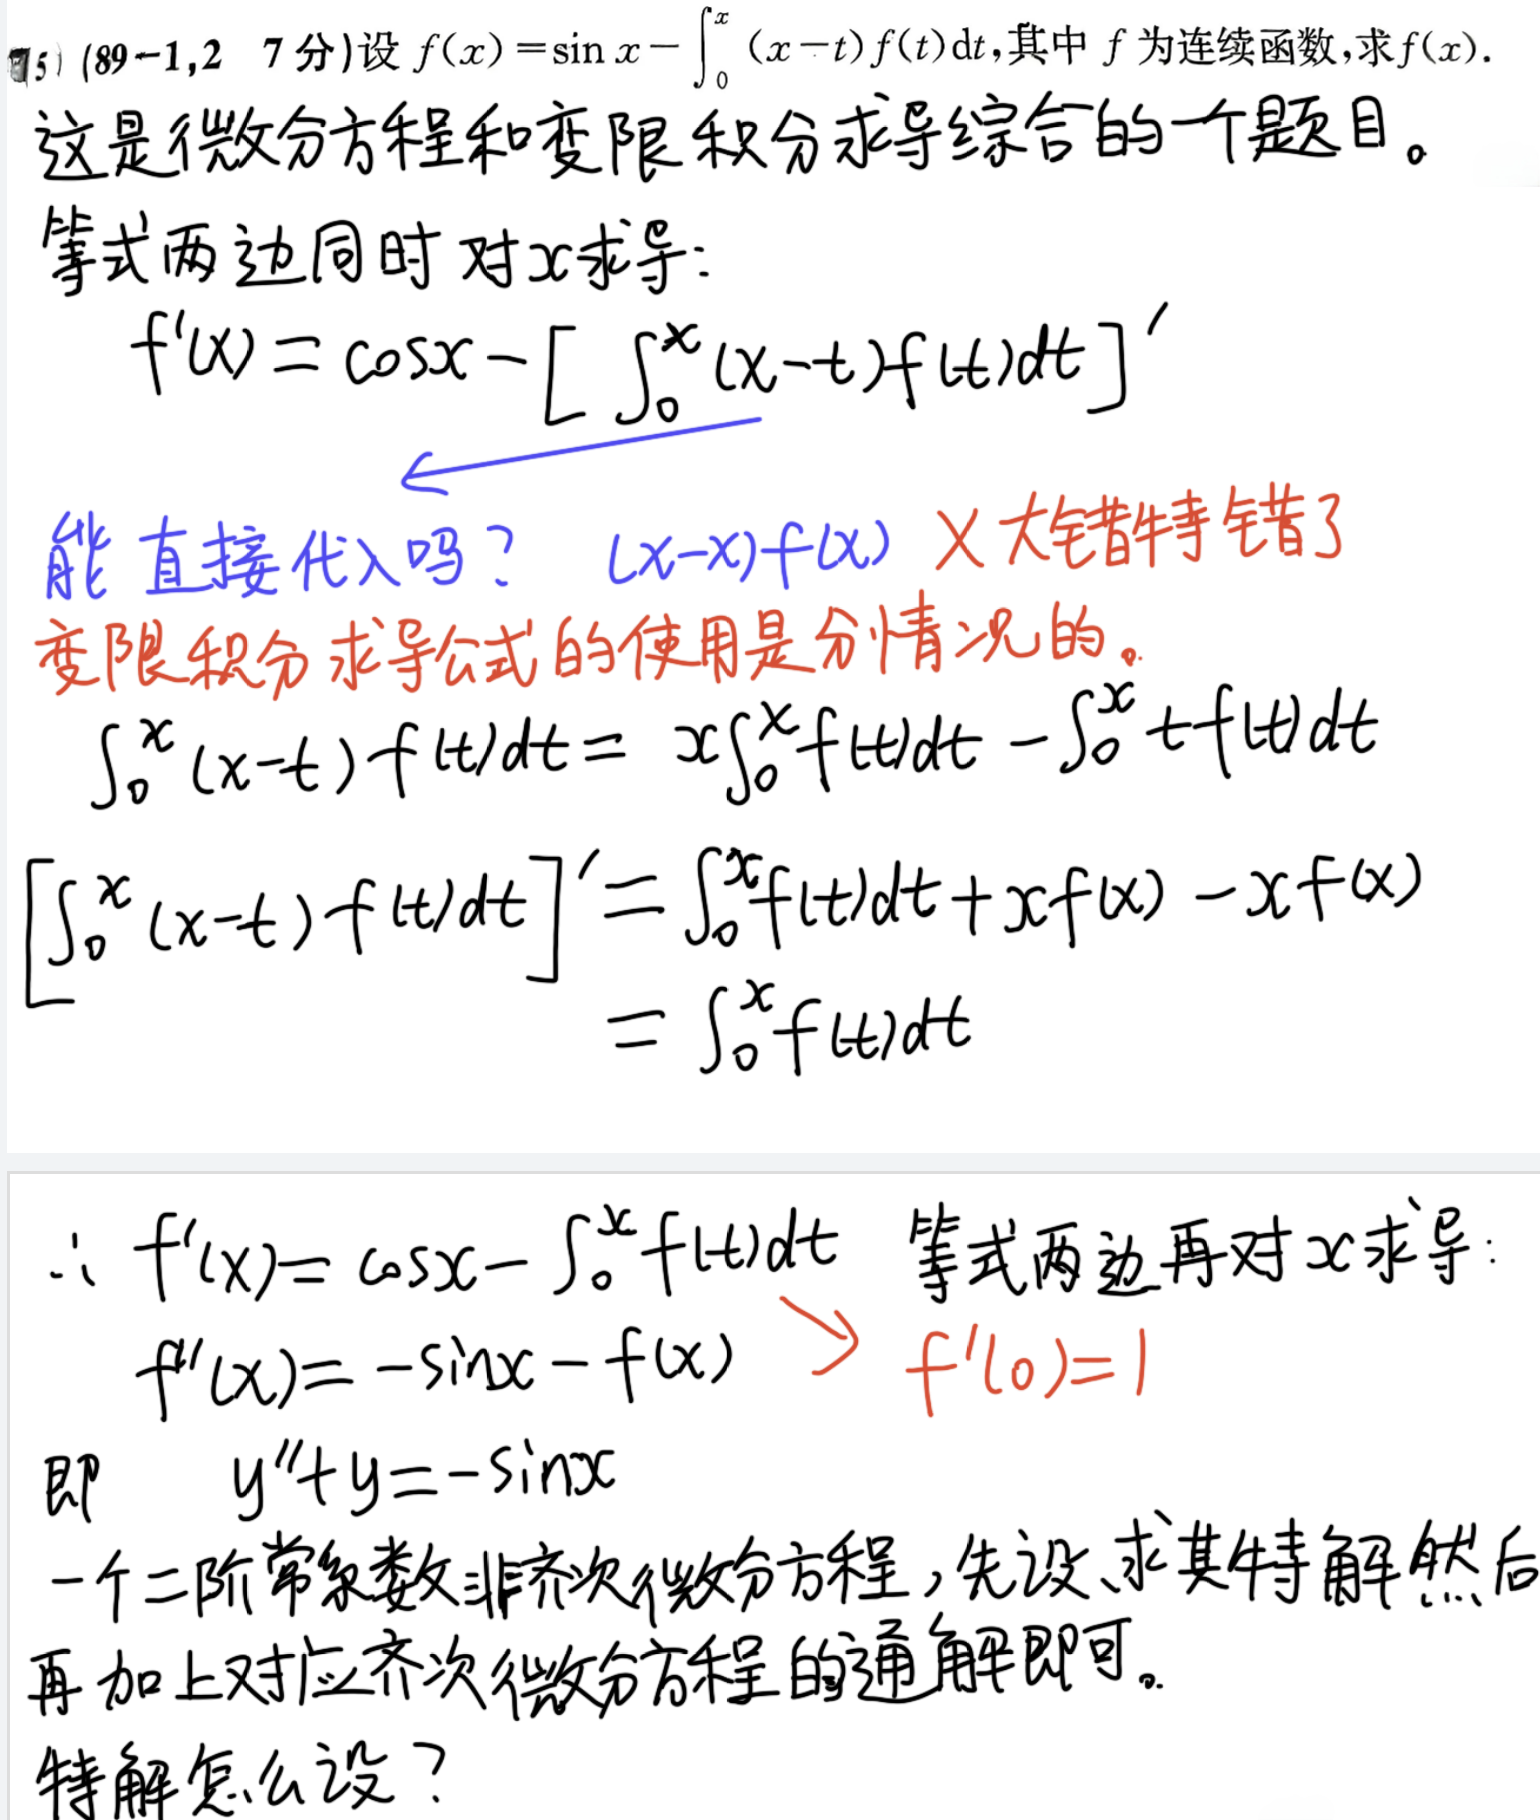 5) (89-1,2 7分)设 f(x)=sin x-∫₀ˣ(x-t)f(t)dt,其中 f 为连续函数,求f(x).
这是微分方程和变限积分求导综合的一个题目。
等式两边同时对x求导:
f'(x)=cosx-[∫₀ˣ(x-t)f(t)dt]'
能直接代入吗? (x-x)f(x) ×大错特错了
变限积分求导公式的使用是分情况的。
∫₀ˣ(x-t)f(t)dt= x∫₀ˣf(t)dt-∫₀ˣtf(t)dt
[∫₀ˣ(x-t)f(t)dt]'=∫₀ˣf(t)dt+xf(x)-xf(x)
=∫₀ˣf(t)dt
∴ f'(x)=cosx-∫₀ˣf(t)dt 等式两边再对x求导:
f''(x)=-sinx-f(x) ↘ f'(0)=1
即 y''+y=-sinx
一个二阶常系数非齐次微分方程,先设、求其特解然后
再加上对应齐次微分方程的通解即可。
特解怎么设?